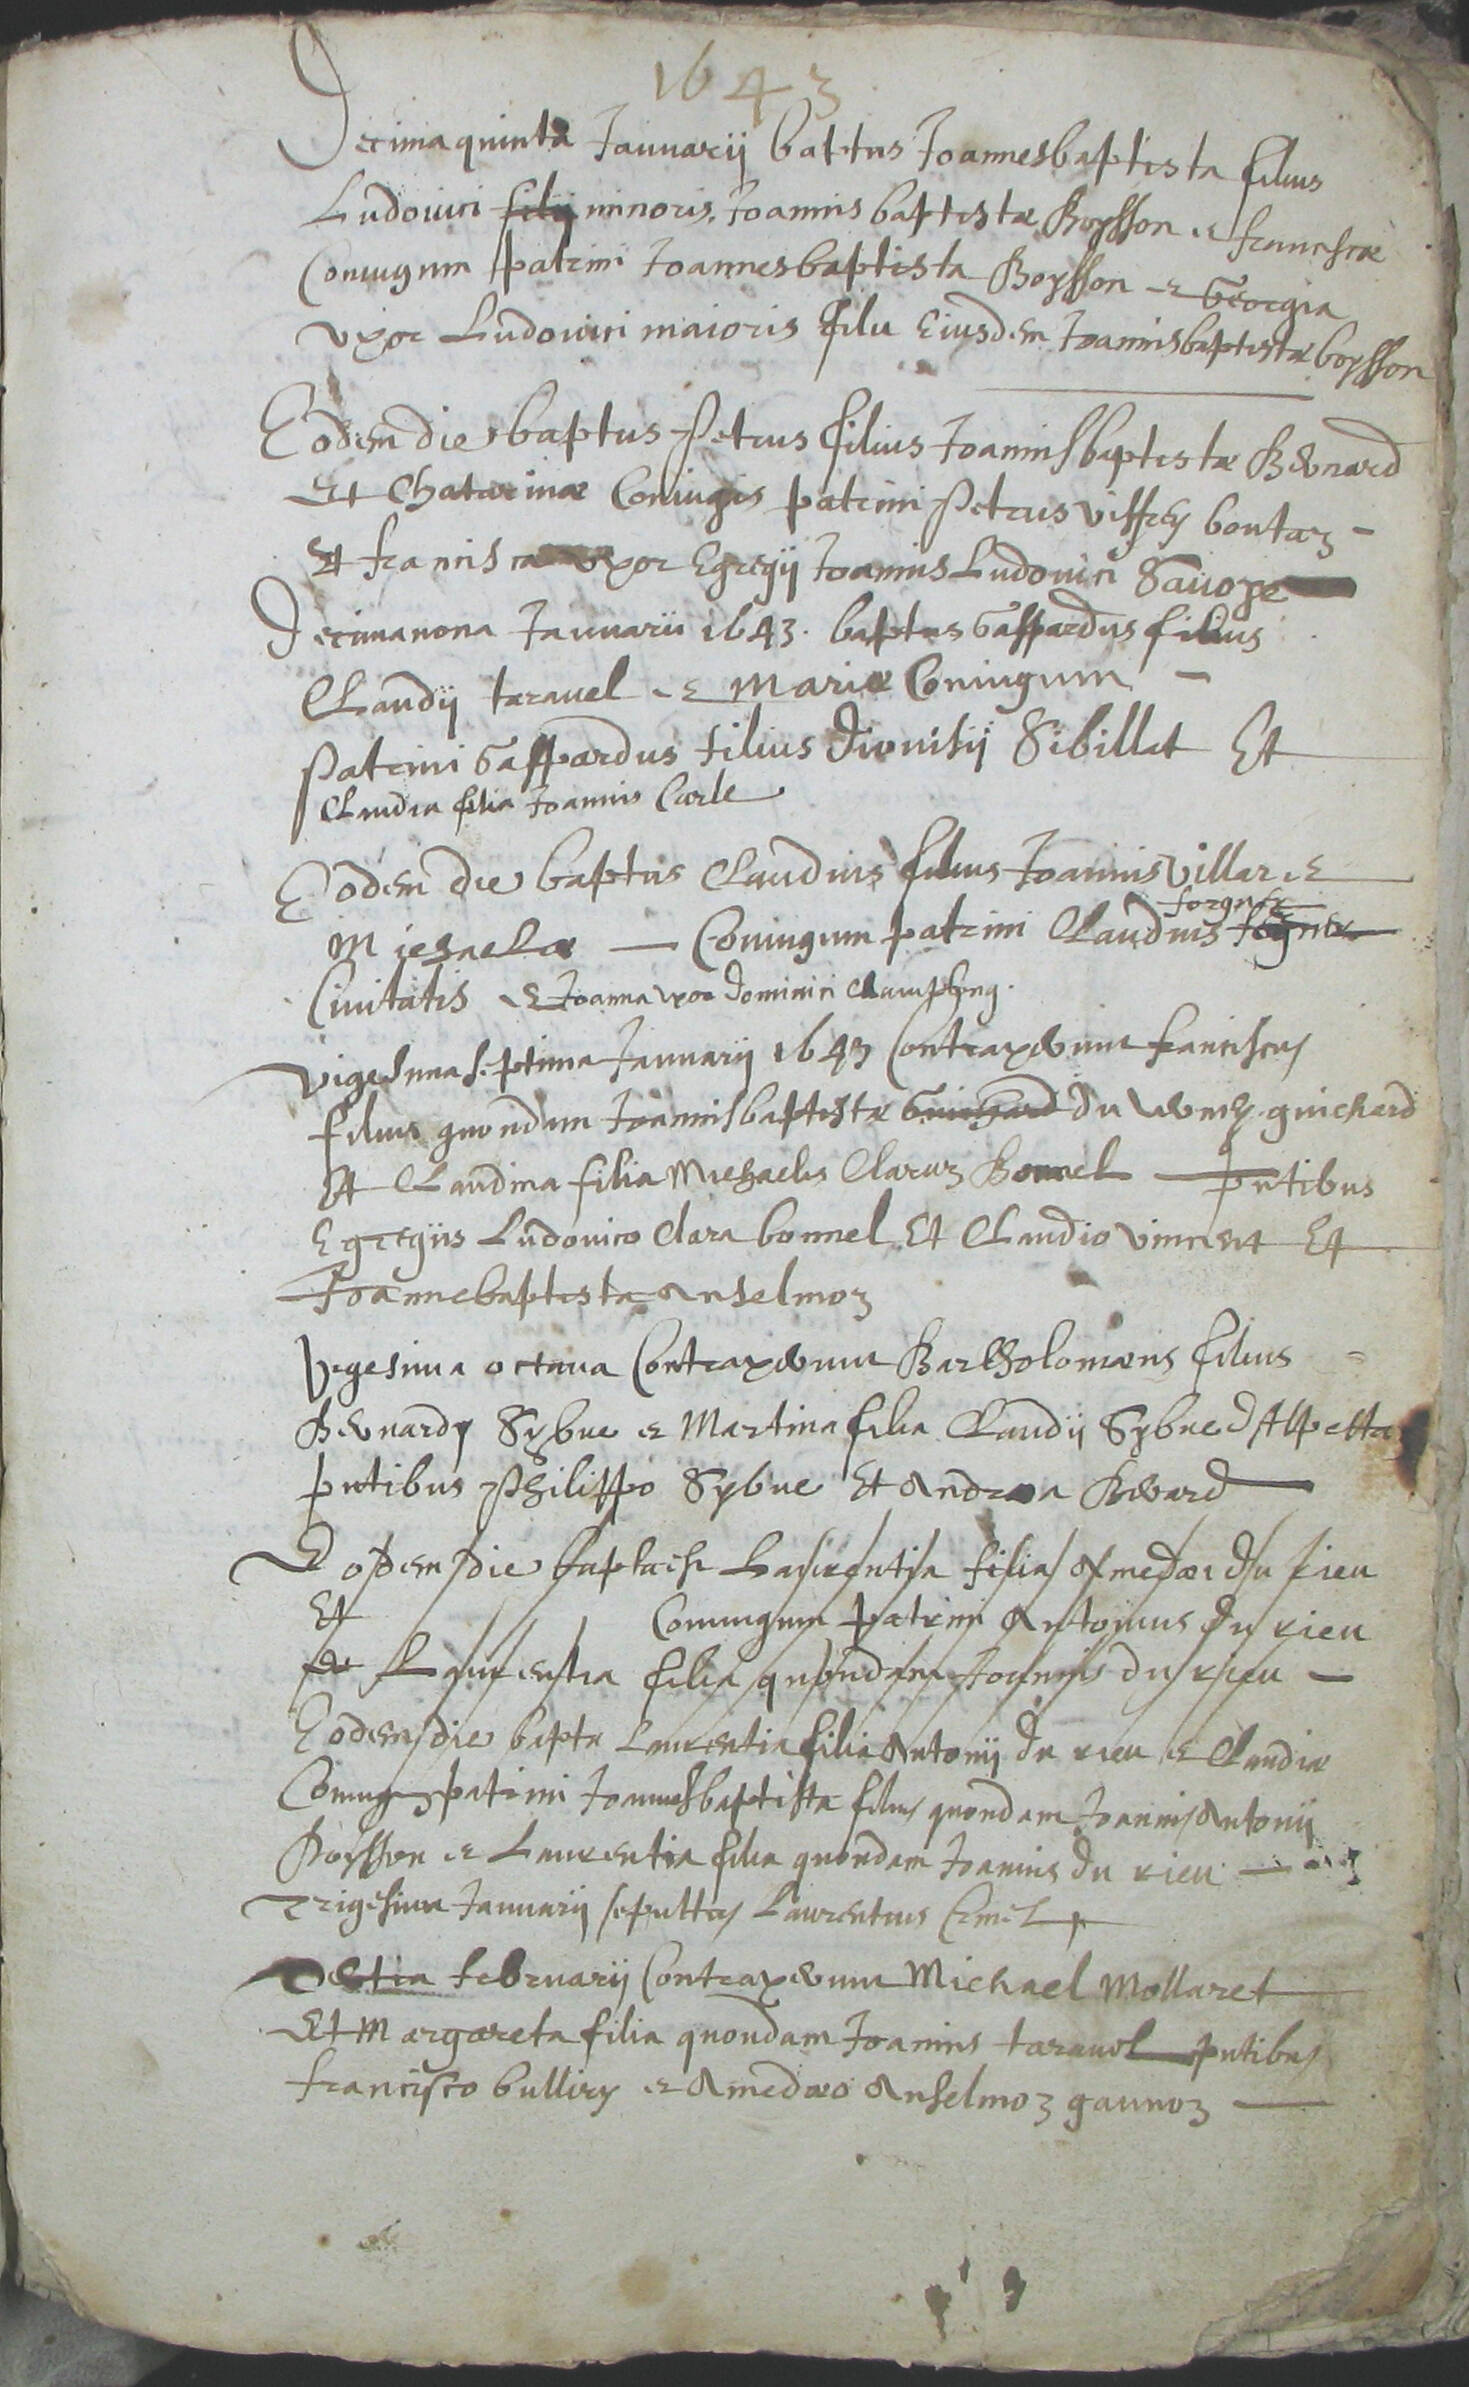 1643
Decimaquinta Januarij baptus Joannesbaptista filius
Ludovici filij minoris Joannis baptistæ Boysson et franciscæ
Coniugum patrini Joannesbaptista Boysson et Georgia
uxor Ludovici maioris filii Eiusdem Joannisbaptistæ boysson
Eodem die baptus Petrus filius Joannisbaptistæ Bernard
Et Chatarinæ Coniugis patrini Petrus viffrey boutaz
Et francisca uxor Egregij Joannis Ludovici Savoye
Decimanona Januarii 1643. baptus Gaspardus filius
Claudij taravel et Mariæ Coniugum
Patrini Gaspardus filius Dionisij Sibillat Et
Claudia filia Joannis Carle
Eodem die baptus Claudius filius Joannis Villar et
forgner
Michaelæ Coniugum patrini Claudius
Civitatis et Joanna uxor Dominici
Vigesima septima Januarij 1643 Contraxerunt franciscus
filius quondam Joannisbaptistæ Guichard du guichard
Et Claudina filia Michaelis Claraz Bonnel pntibus
Egregiis Ludovico Clara bonnel Et Claudio vincent Et
Joannebaptista Anselmoz
Vigesima octava Contraxerunt Bartholomæus filius
Bernardy Sybue et Martina filia Claudij Sybue d Alpetta
pntibus Philippo Sybue Et Andrea Berard
Eodem die Laurentia filia Amedæi du rieu
Et Coniugum patrini Antonius du rieu
et Laurentia filia quondam Joannis du rieu
Eodem die bapta Laurentia filia Antonij du rieu et Claudiæ
Coniugum patrini Joannesbaptista filius quondam Joannis Antonij
Boysson et Laurentia filia quondam Joannis du rieu
Trigesima Januarij sepultus Laurentius
Tertia februarij Contraxerunt Michael Mollaret
Et Margareta filia quondam Joannis taravel pntibus
francisco et Amedæo Anselmoz gaunoz